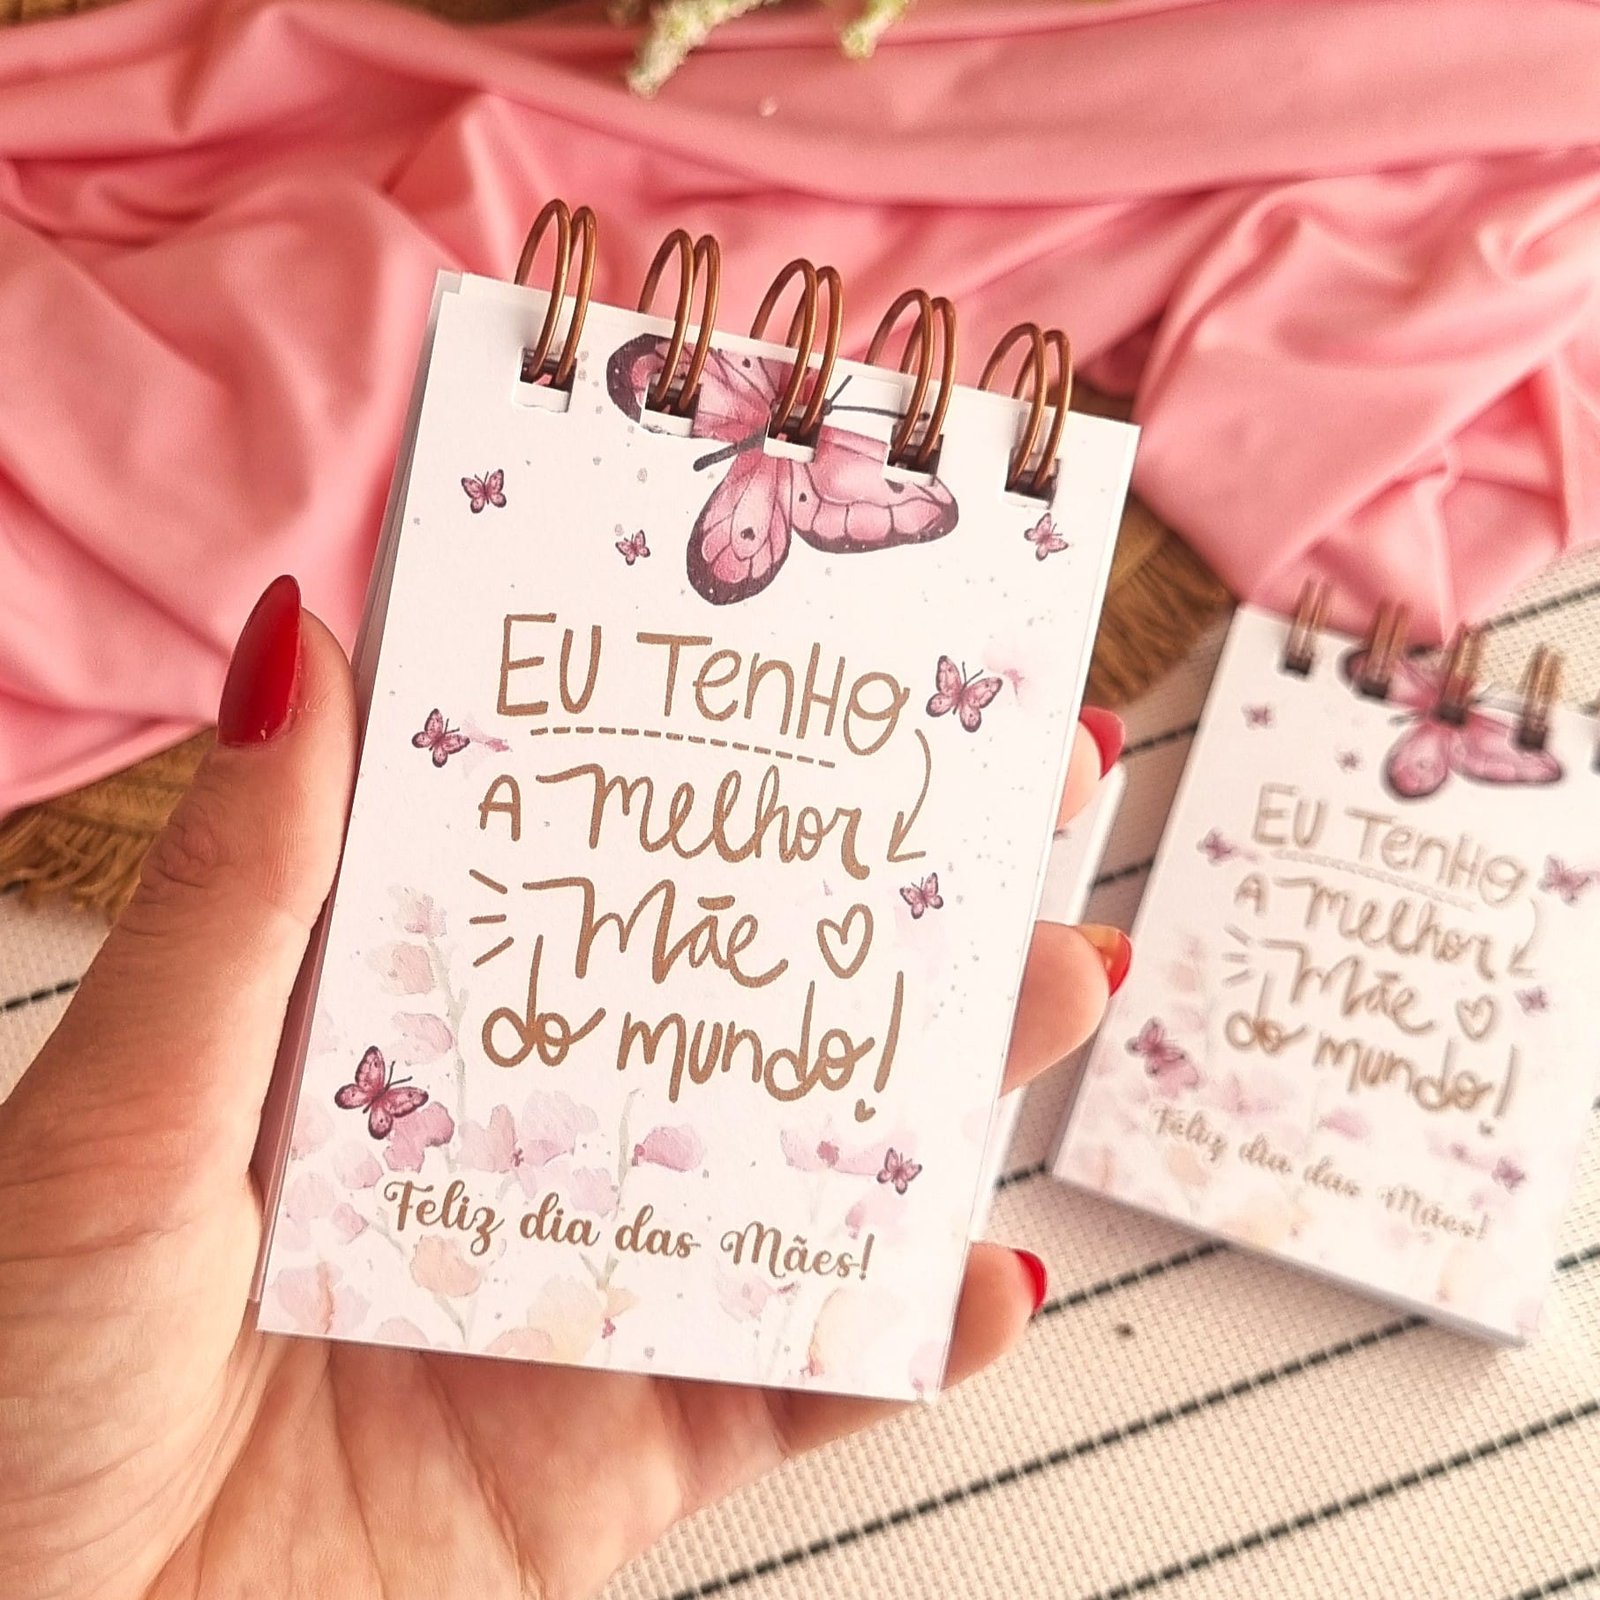 EU TenHO
A melhor
Mãe
do mundo!
Feliz dia das Mães!
EU TenHO
A melhor
Mãe
do mundo!
Feliz dia das Mães!